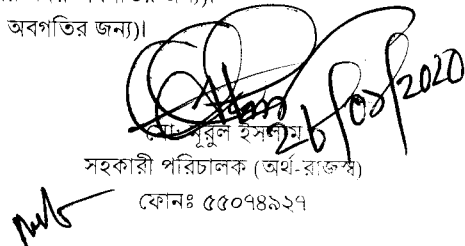 অবগতির জন্য)।
২৮/০১/২০২০
মোঃ নূরুল ইসলাম
সহকারী পরিচালক (অর্থ-রাজস্ব)
ফোনঃ ৫৫০৭৪৯২৭